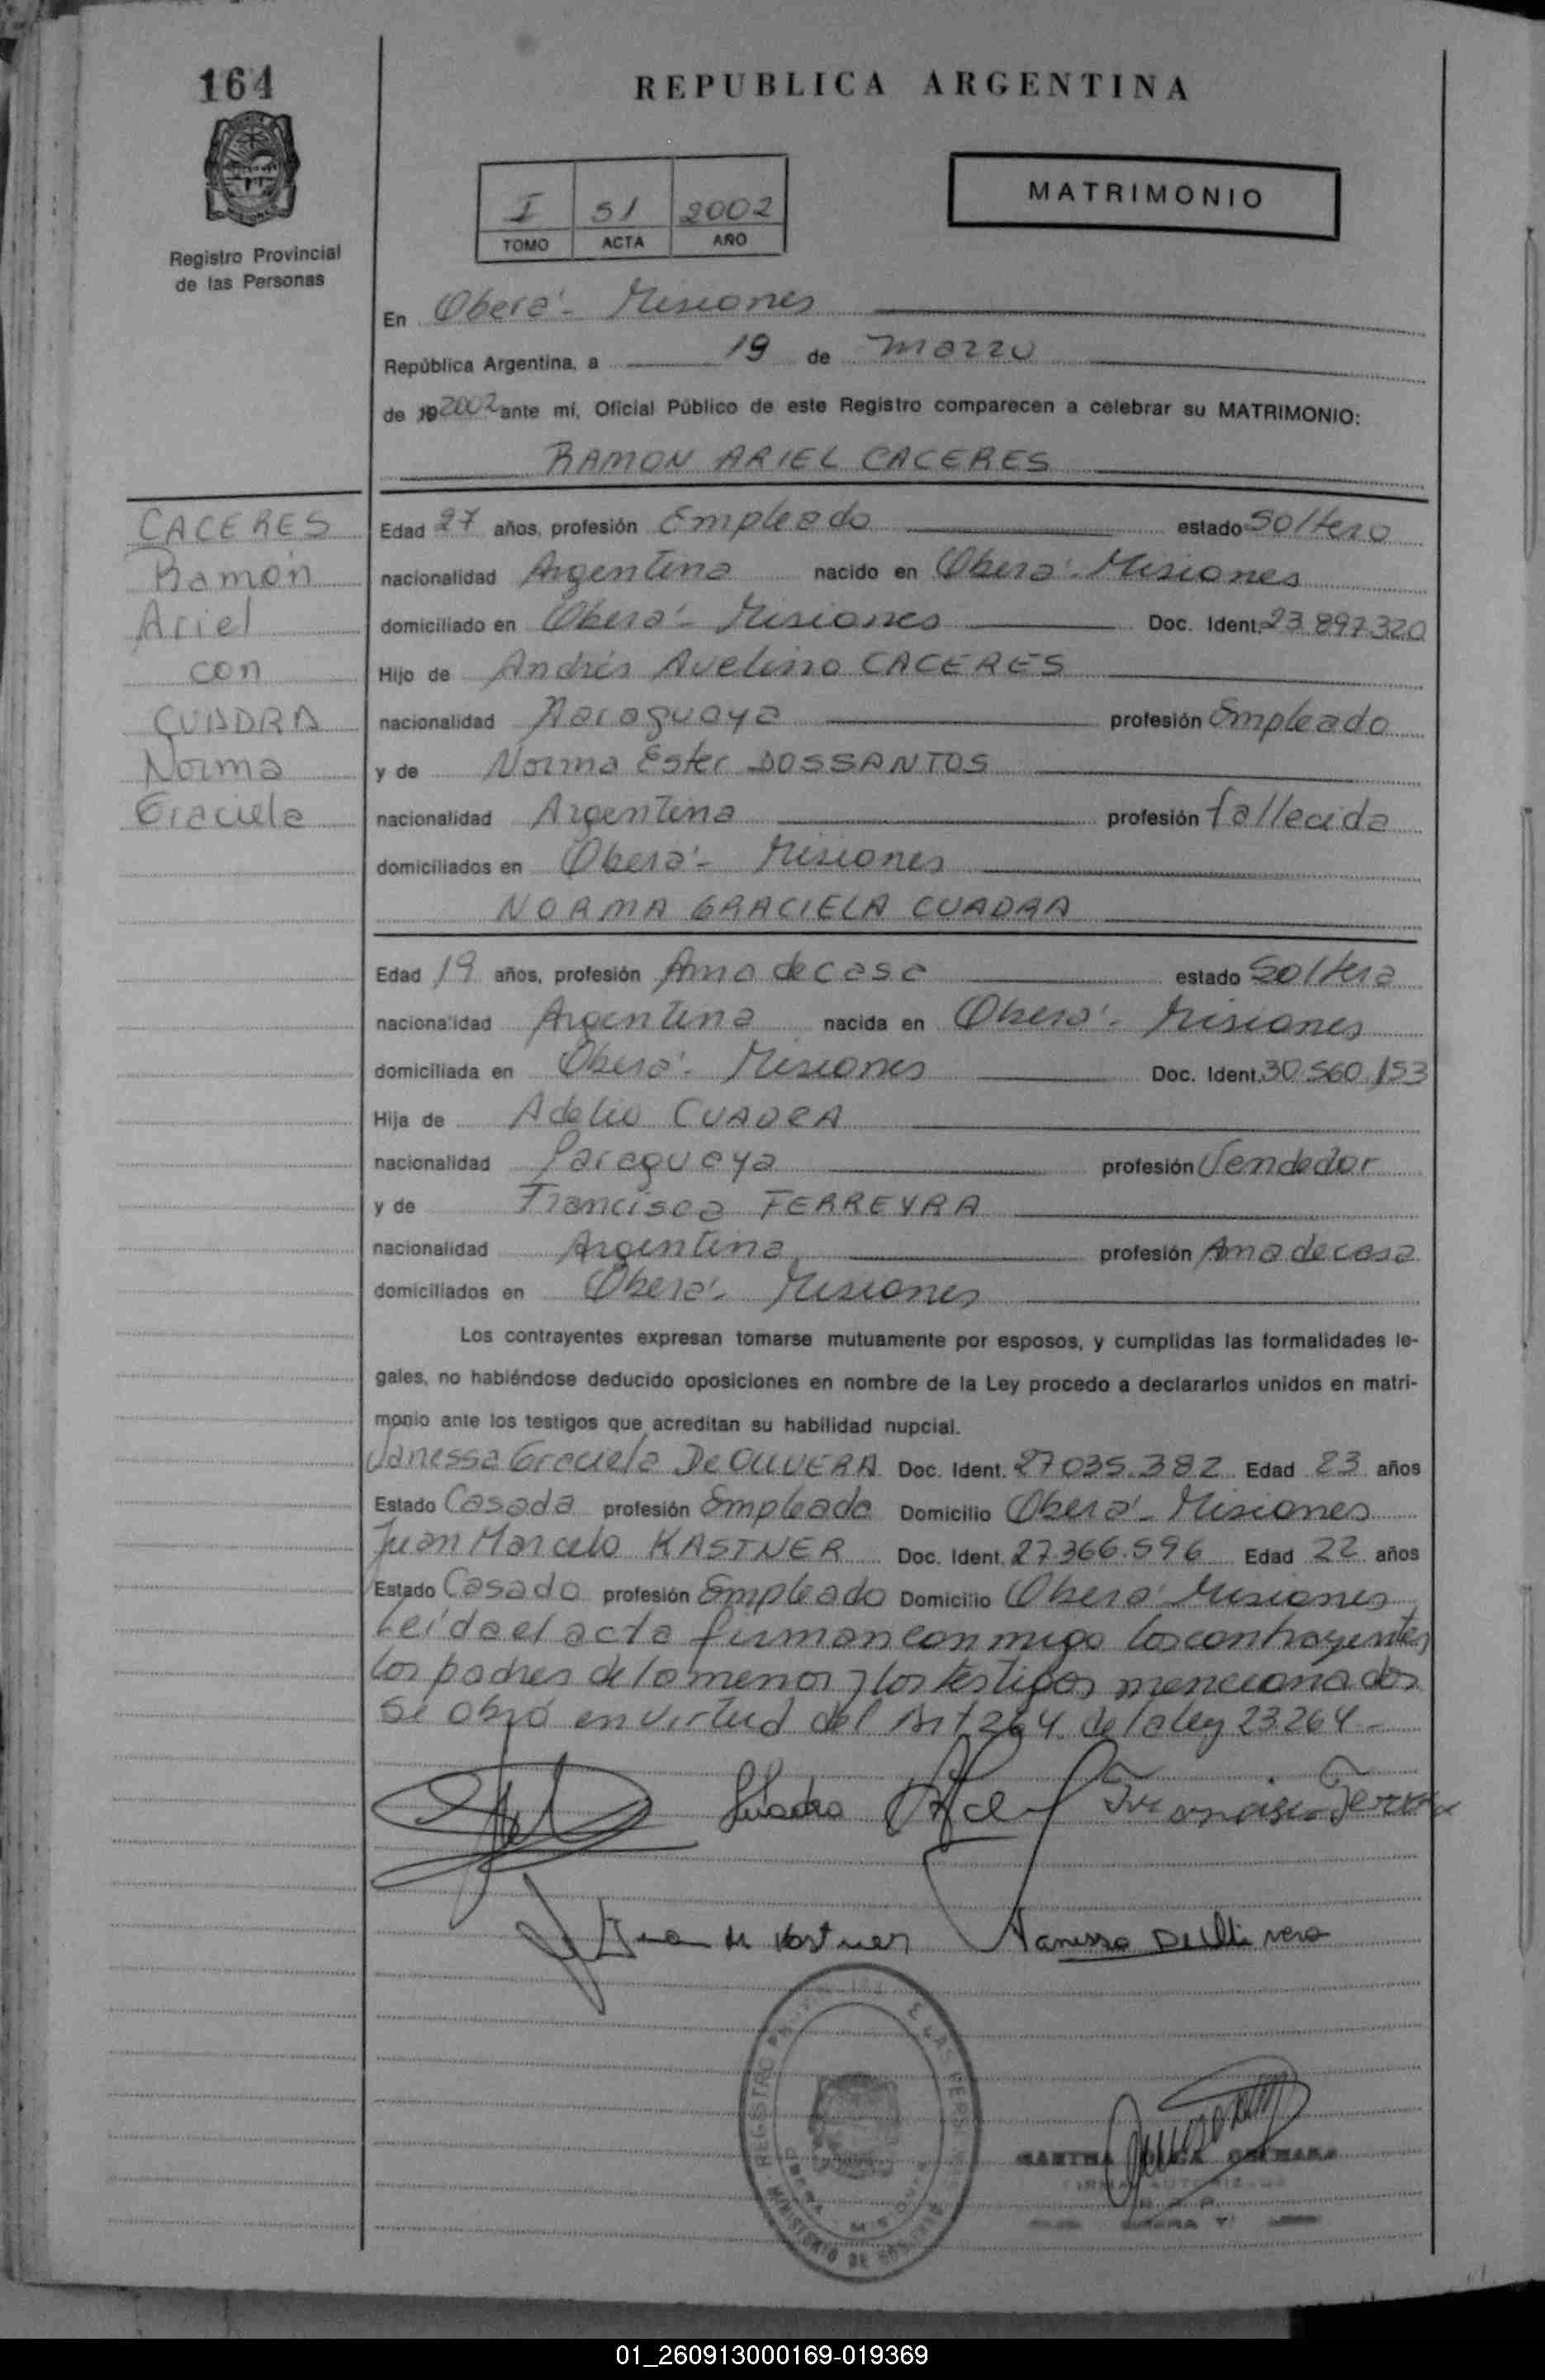 164
REPUBLICA ARGENTINA
I 51 2002
TOMO ACTA AÑO
MATRIMONIO
Registro Provincial
de las Personas
En Oberá - Misiones
República Argentina, a 19 de marzo
de 19 2002 ante mí, Oficial Público de este Registro comparecen a celebrar su MATRIMONIO:
RAMON ARIEL CACERES
CACERES
Ramón
Ariel
con
CUADRA
Norma
Graciela
Edad 27 años, profesión Empleado estado Soltero
nacionalidad Argentina nacido en Oberá - Misiones
domiciliado en Oberá - Misiones Doc. Ident. 23.897.320
Hijo de Andrés Avelino CACERES
nacionalidad Paraguaya profesión Empleado
y de Norma Ester DOSSANTOS
nacionalidad Argentina profesión fallecida
domiciliados en Oberá - Misiones
NORMA GRACIELA CUADRA
Edad 19 años, profesión Ama de casa estado Soltera
nacionalidad Argentina nacida en Oberá - Misiones
domiciliada en Oberá - Misiones Doc. Ident. 30.560.153
Hija de Adelio CUADRA
nacionalidad Paraguaya profesión Vendedor
y de Francisca FERREYRA
nacionalidad Argentina profesión Ama de casa
domiciliados en Oberá - Misiones
Los contrayentes expresan tomarse mutuamente por esposos, y cumplidas las formalidades le-
gales, no habiéndose deducido oposiciones en nombre de la Ley procedo a declararlos unidos en matri-
monio ante los testigos que acreditan su habilidad nupcial.
Vanessa Graciela De OLIVERA Doc. Ident. 27.035.382 Edad 23 años
Estado Casada profesión Empleada Domicilio Oberá - Misiones
Juan Marcelo KASTNER Doc. Ident. 27.366.596 Edad 22 años
Estado Casado profesión Empleado Domicilio Oberá Misiones
Leída el acta firman conmigo los contrayentes
los padres de la menor y los testigos mencionados
se obró en virtud del Art 264 de la ley 23.264 -
Cuadra Francisca Ferreyra
Juan M Kastner Vanessa De Olivera
REGISTRO
MINISTERIO DE
MARTHA
01_260913000169-019369